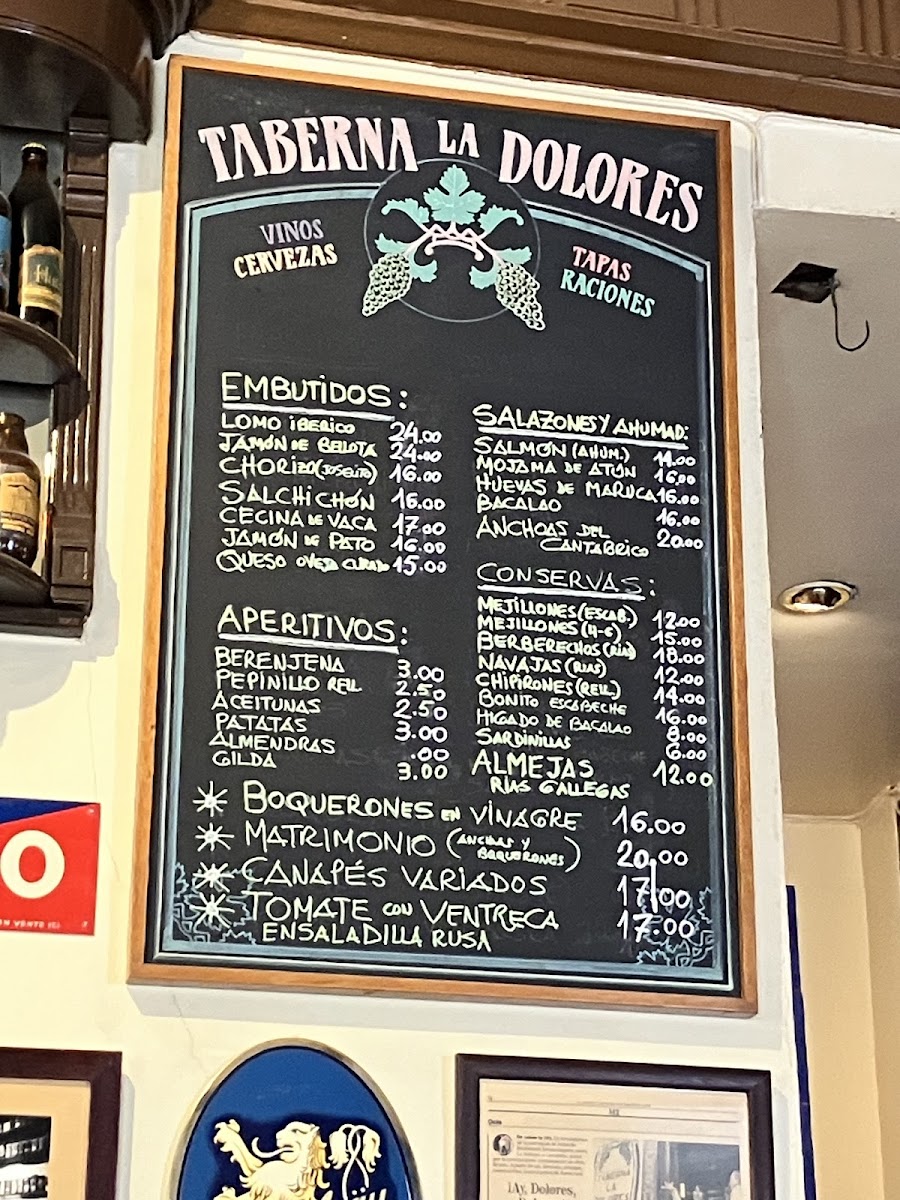 TABERNA LA DOLORES
VINOS
CERVEZAS
TAPAS
RACIONES
EMBUTIDOS:
LOMO IBERICO 24.00
JAMÓN DE BELLOTA 24.00
CHORIZO (JOSELITO) 16.00
SALCHICHÓN 16.00
CECINA DE VACA 17.00
JAMÓN DE PATO 16.00
QUESO OVEJA CURADO 15.00
APERITIVOS:
BERENJENA 3.00
PEPINILLO RELL 2.50
ACEITUNAS 2.50
PATATAS 3.00
ALMENDRAS .00
GILDA 3.00
SALAZONES Y AHUMAD:
SALMÓN (AHUM.) 14.00
MOJAMA DE ATÚN 16.00
HUEVAS DE MARUCA 16.00
BACALAO 16.00
ANCHOAS DEL
CANTABRICO 20.00
CONSERVAS:
MEJILLONES (ESCAB.) 12.00
MEJILLONES (4-6) 15.00
BERBERECHOS (RIAS) 18.00
NAVAJAS (RIAS) 12.00
CHIPIRONES (RELL) 14.00
BONITO ESCABECHE 16.00
HIGADO DE BACALAO 8.00
SARDINILLAS 6.00
ALMEJAS 12.00
RIAS GALLEGAS
BOQUERONES EN VINAGRE 16.00
MATRIMONIO (ANCHOAS Y BOQUERONES) 20,00
CANAPÉS VARIADOS 17.00
TOMATE CON VENTRECA 17.00
ENSALADILLA RUSA
O
EN VENTE ICI
¡Ay, Dolores,